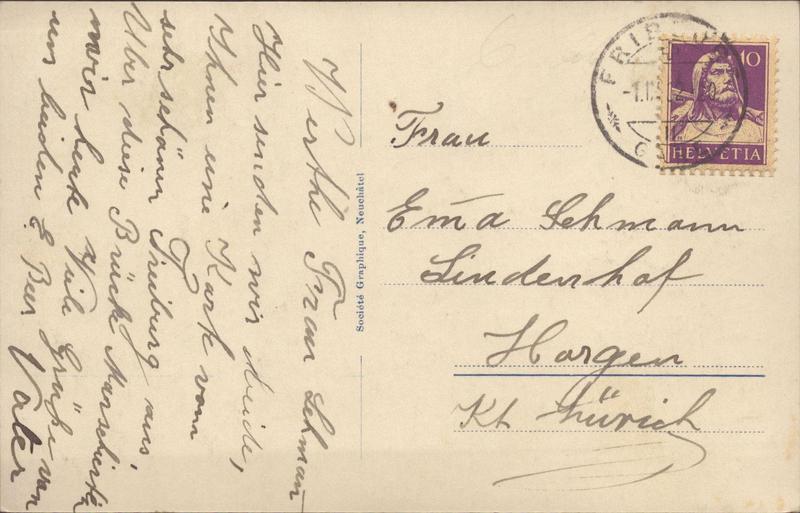 Werthe Frau Lehmann
Hier senden wir Beide,
Ihnen eine Karte vom
sehr schönen Freiburg aus
Über diese Brück Marschierten
wir heute Viele Grüße von
uns beiden E. Bier
Vater
Société Graphique, Neuchâtel
FRIBOURG
10
HELVETIA
Frau
Em̄a Lehmann
Lindenhof
Horgen
Kt Zürich